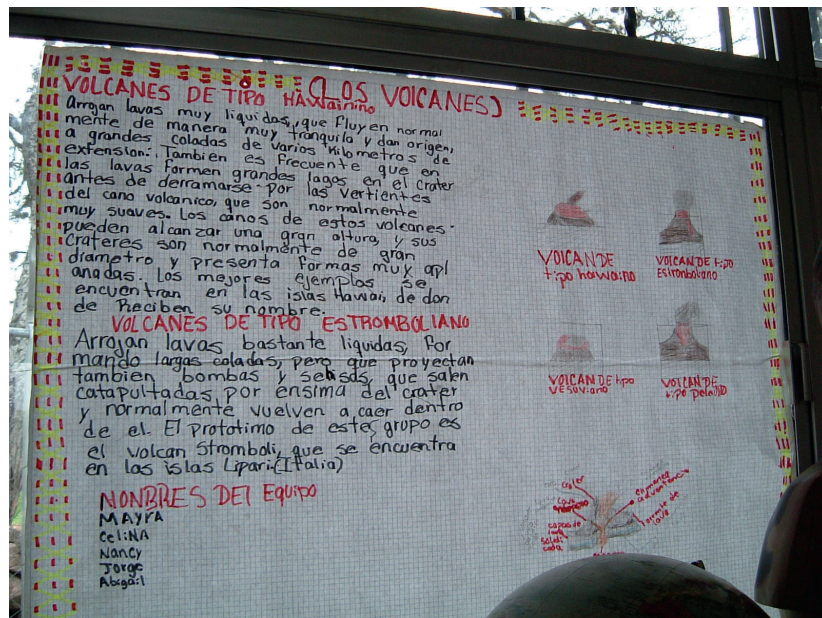 (LOS VOLCANES)
VOLCANES DE TIPO HAWaiниno
Arrojan lavas muy liquidas, que fluyen normal
mente de manera muy tranquila y dan origen,
a grandes coladas de varios Kilometros de
extension. Tambien es frecuente que en
las lavas formen grandes lagos en el crater
antes de derramarse por las vertientes
del cano volcanico, que son normalmente
muy suaves. Los canos de estos volcanes
pueden alcanzar una gran altura, y sus
crateres son normalmente de gran
diametro y presenta formas muy apl
anadas. Los mejores ejemplos se
encuentran en las islas Hawai, de don
de Reciben su nombre.
VOLCANES DE TIPO ESTROMBOLIANO
Arrojan lavas bastante liquidas, for
mando largas coladas, pero que proyectan
tambien bombas y que salen
catapultadas por ensima del crater
y normalmente vuelven a caer dentro
de el. El prototimo de este grupo es
el volcan Stromboli, que se encuentra
en las islas Lipari (Italia)
NONBRES DEl Equipo
MAYRA
CeliNA
Nancy
Jorge
Abigail
VOlCAN DE
tipo hawaiano
VOLCAN DE tipo
Estromboliano
VOlCAN DE tipo
VESUViano
VOlCAN DE
tipo peleaNO
crater
cono
chimenea
adventencia
capas de
lava
solidi
cada
corriente de
lava